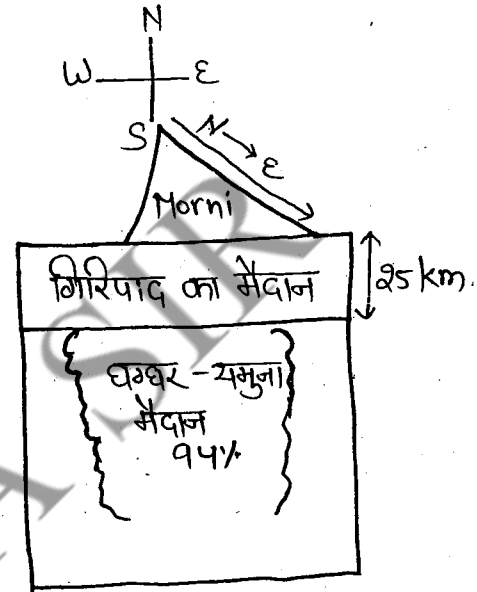 N
W E
S
N → E
Morni
गिरिपाद का मैदान
25 km.
घग्घर - यमुना
मैदान
94%
A SIR